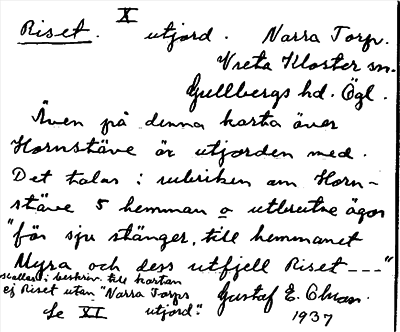 X
Riset. utjord. Narra Torp.
Vreta Kloster sn.
Gullbergs hd. Ögl.
Även på denna karta över
Hornstäve är utjorden med.
Det talas i rubriken om Horn-
stäve 5 hemman o utbrutne ägor
"för sju stänger, till hemmanet
Myra och dess utfjell Riset ---"
kallas i beskrivn. till kartan
ej Riset utan "Narra Torps
utjord".
Gustaf E. Ekman.
Se XI
1937